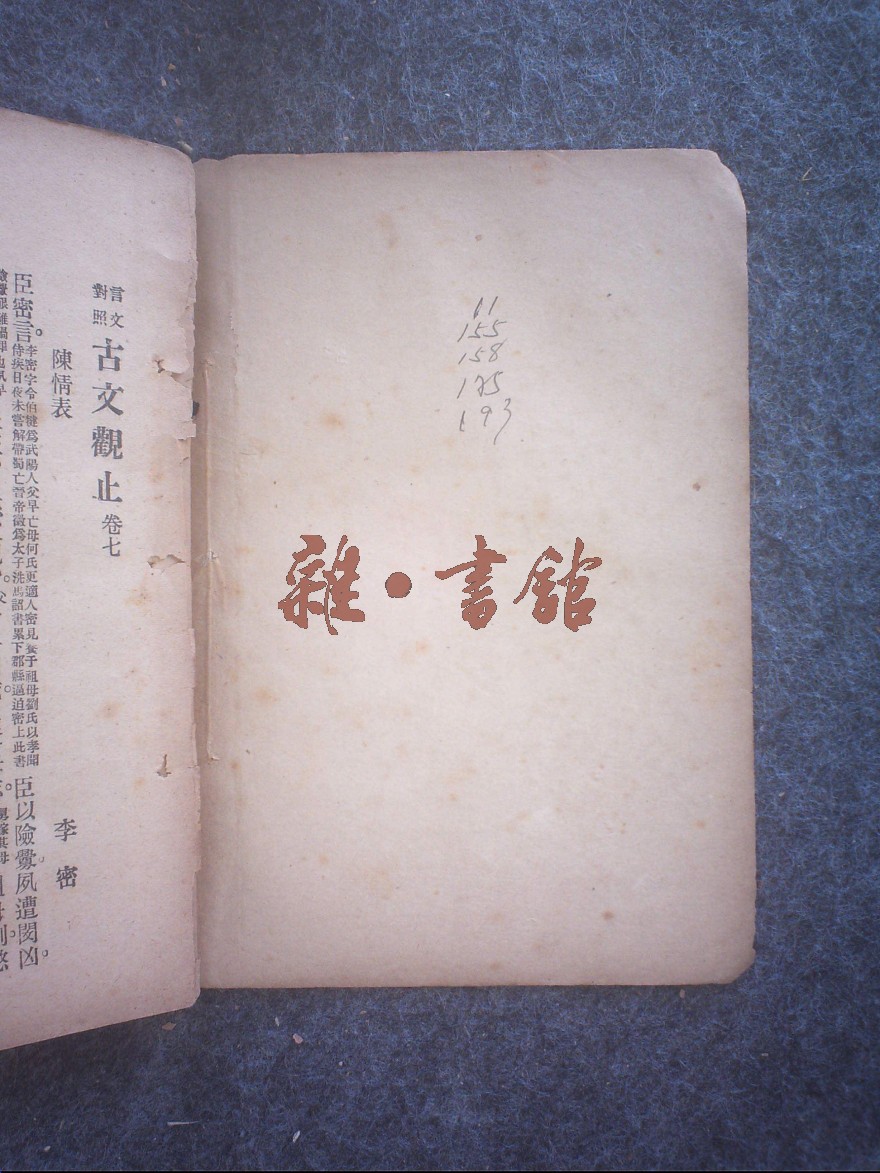 言文對照古文觀止 卷七
陳情表 李密
臣密言。李密字令伯犍為武陽人父早亡母何氏更適人密見養于祖母劉氏以孝聞侍疾日夜未嘗解帶蜀亡晉帝徵為太子洗馬詔書累下郡縣逼迫密上此書臣以險釁。夙遭閔凶。
11
155
158
175
193
雜·書館